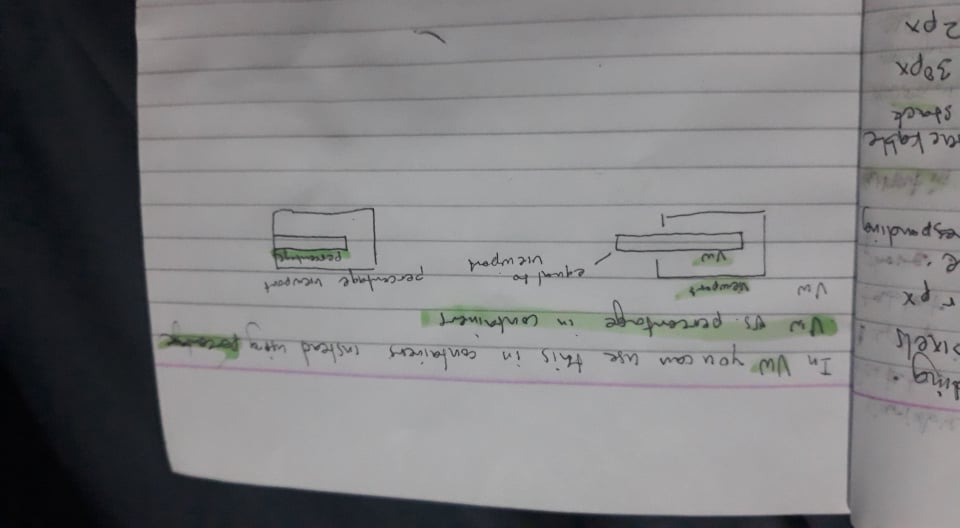 ding.
pixels
r px
e.
responding
stackable
stack
30px
2px
In Vw you can use this in containers instead using percentage
Vw vs. percentage in containers
Vw
viewport
Vw
equal to
viewport
percentage viewport
percentage